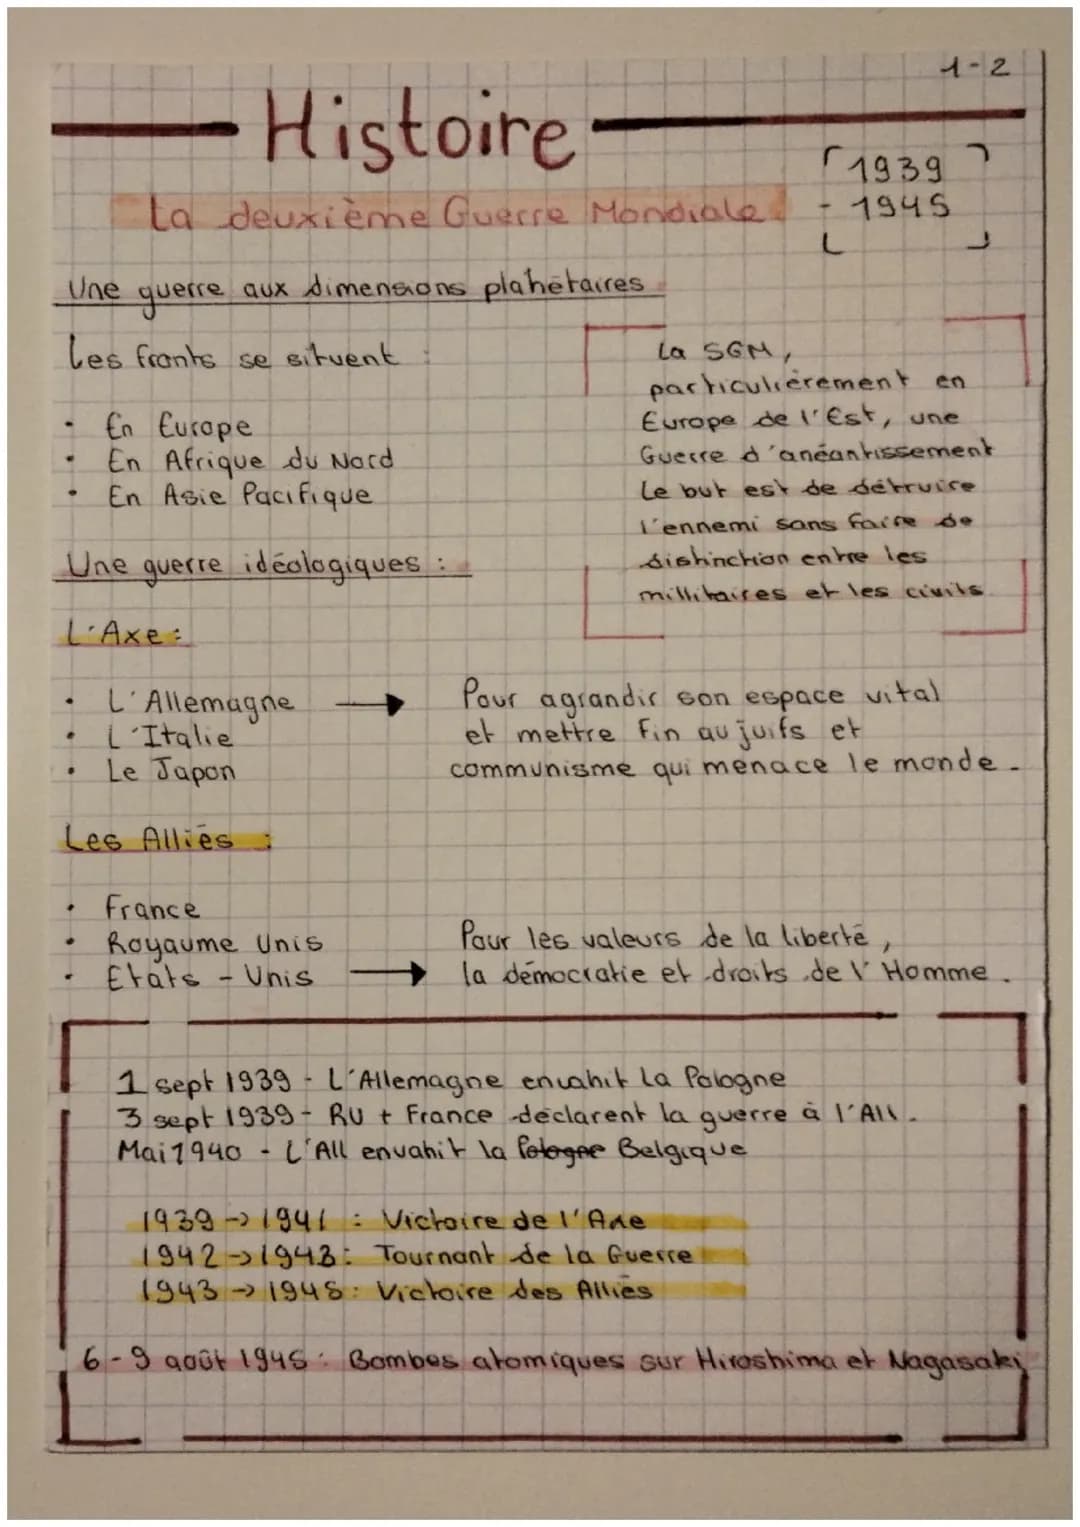 1-2
Histoire
1939
- 1945
La deuxième Guerre Mondiale
Une guerre aux dimensions planétaires
Les fronts se situent :
• En Europe
• En Afrique du Nord
• En Asie Pacifique
La SGM,
particulièrement en
Europe de l'Est, une
Guerre d'anéantissement
Le but est de détruire
l'ennemi sans faire de
distinction entre les
millitaires et les civils.
Une guerre idéologiques :
L'Axe :
• L'Allemagne →
• L'Italie
• Le Japon
Pour agrandir son espace vital
et mettre fin au juifs et
communisme qui menace le monde.
Les Alliés :
• France
• Royaume Unis
• Etats - Unis →
Pour les valeurs de la liberté,
la démocratie et droits de l'Homme.
1 sept 1939 - L'Allemagne envahit la Pologne
3 sept 1939 - RU + France déclarent la guerre à l'All.
Mai 1940 - L'All envahit la Pologne Belgique
1939 → 1941 : Victoire de l'Axe
1942 → 1943 : Tournant de la Guerre
1943 → 1945 : Victoire des Alliés
6-9 août 1945 : Bombes atomiques sur Hiroshima et Nagasaki